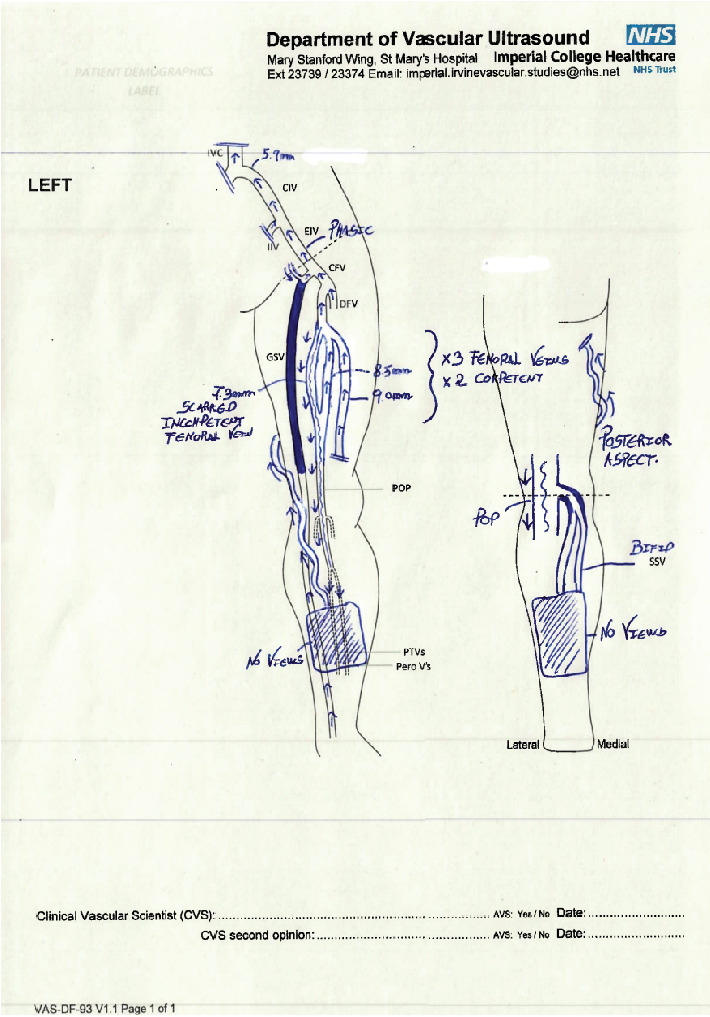 Department of Vascular Ultrasound NHS
Mary Stanford Wing, St Mary's Hospital Imperial College Healthcare
Ext 23739 / 23374 Email: imperial.irvinevascular.studies@nhs.net NHS Trust
PATIENT DEMOGRAPHICS
LABEL
LEFT
IVC
5.9mm
CIV
EIV
PHASIC
IIV
CFV
DFV
GSV
8.5mm
9.0mm
X3 FEMORAL VEINS
X2 COMPETENT
7.3mm
SCARRED
INCOMPETENT
FEMORAL VEIN
POSTERIOR
ASPECT.
POP
POP
BIFID
SSV
NO VIEWS
NO VIEWS
PTVs
Pero V's
Lateral
Medial
Clinical Vascular Scientist (CVS): AVS: Yes / No Date:
CVS second opinion: AVS: Yes / No Date:
VAS-DF-93 V1.1 Page 1 of 1